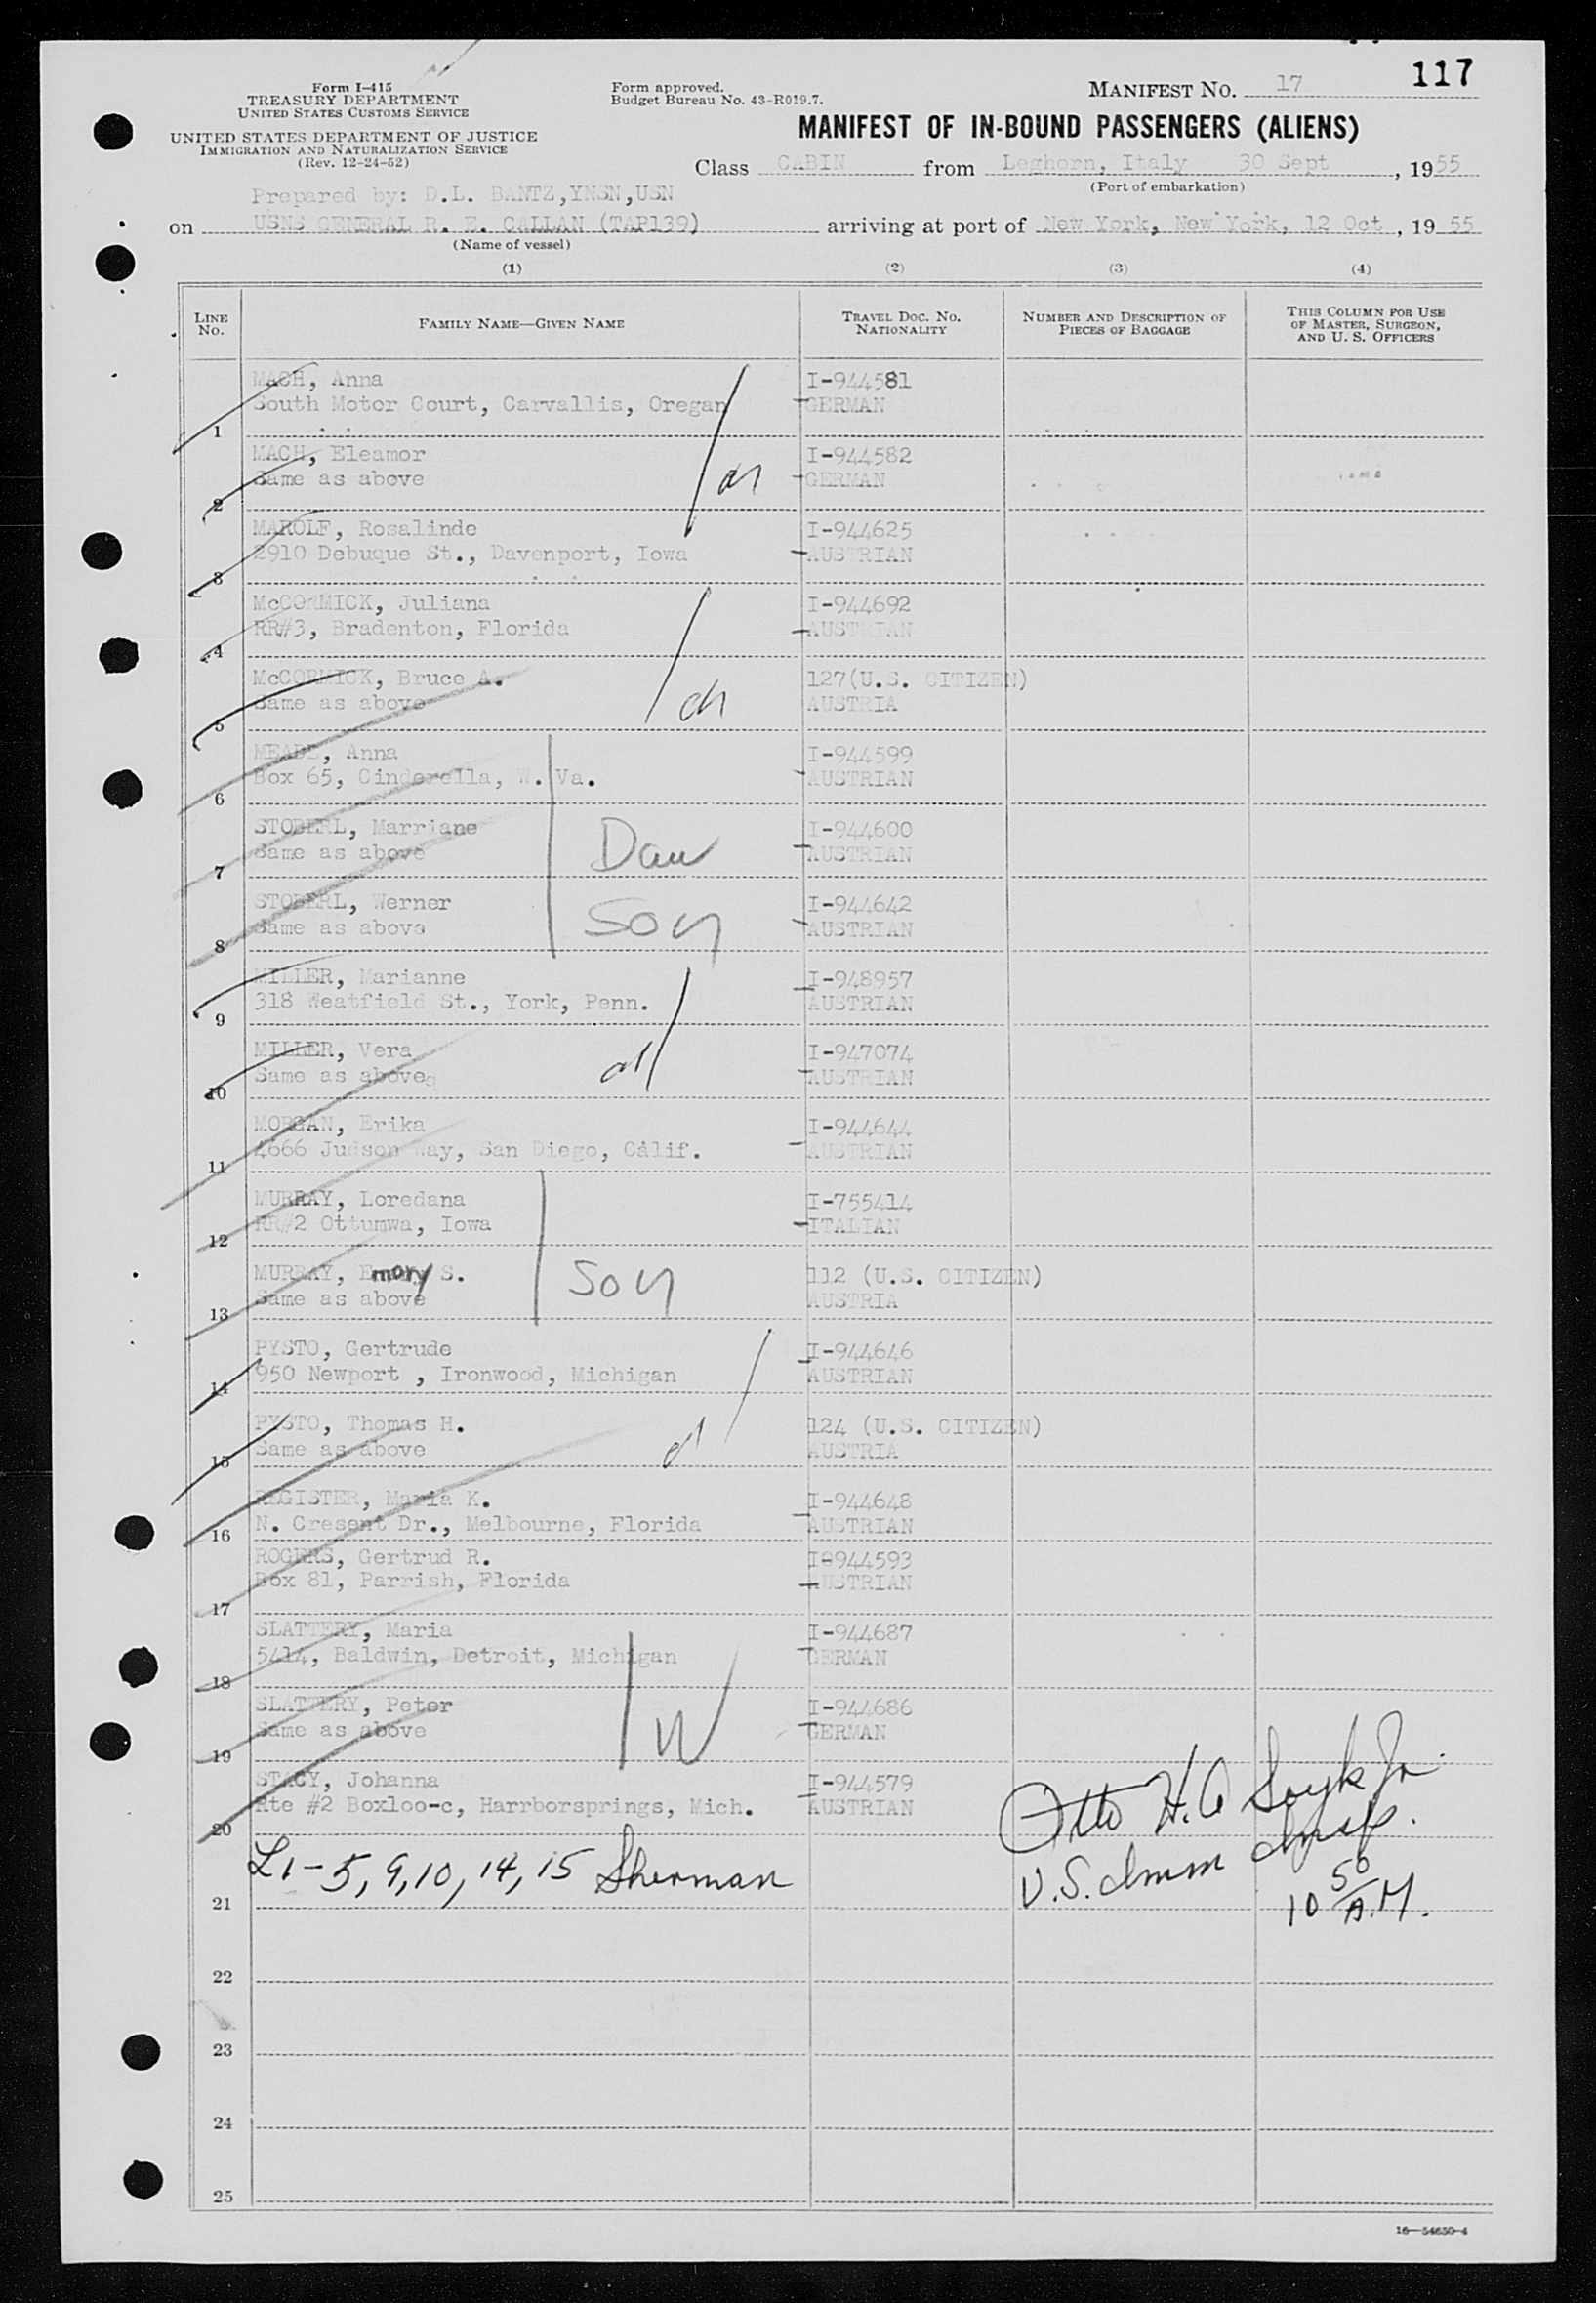 117
Form I-415
TREASURY DEPARTMENT
UNITED STATES CUSTOMS SERVICE
UNITED STATES DEPARTMENT OF JUSTICE
IMMIGRATION AND NATURALIZATION SERVICE
(Rev. 12-24-52)
Form approved.
Budget Bureau No. 43-R019.7.
MANIFEST NO. 17
MANIFEST OF IN-BOUND PASSENGERS (ALIENS)
Class CABIN from Leghorn, Italy 30 Sept, 1955
(Port of embarkation)
Prepared by: D.L. BANTZ,YNSN,USN
on USNS GENERAL R. E. CALLAN (TAP139) arriving at port of New York, New York, 12 Oct, 1955
(Name of vessel)
(1) (2) (3) (4)
LINE NO. FAMILY NAME—GIVEN NAME TRAVEL DOC. NO. NATIONALITY NUMBER AND DESCRIPTION OF PIECES OF BAGGAGE THIS COLUMN FOR USE OF MASTER, SURGEON, AND U. S. OFFICERS
MACH, Anna I-944581
1 South Motor Court, Carvallis, Oregan GERMAN
MACH, Eleamor I-944582
2 Same as above GERMAN
MAROLF, Rosalinde I-944625
3 2910 Debuque St., Davenport, Iowa AUSTRIAN
McCORMICK, Juliana I-944692
4 RR#3, Bradenton, Florida AUSTRIAN
McCORMICK, Bruce A. 127(U.S. CITIZEN)
5 Same as above AUSTRIA
MEADE, Anna I-944599
6 Box 65, Cinderella, W. Va. AUSTRIAN
STOBERL, Marriane I-944600
7 Same as above Dau AUSTRIAN
STOBERL, Werner I-944642
8 Same as above Son AUSTRIAN
MILLER, Marianne I-948957
9 318 Weatfield St., York, Penn. AUSTRIAN
MILLER, Vera I-947074
10 Same as above AUSTRIAN
MORGAN, Erika I-944644
11 4666 Judson Way, San Diego, Calif. AUSTRIAN
MURRAY, Loredana I-755414
12 RR#2 Ottumwa, Iowa ITALIAN
MURRAY, Emory S. 112 (U.S. CITIZEN)
13 Same as above Son AUSTRIA
PYSTO, Gertrude I-944646
14 950 Newport , Ironwood, Michigan AUSTRIAN
PYSTO, Thomas H. 124 (U.S. CITIZEN)
15 Same as above AUSTRIA
REGISTER, Maria K. I-944648
16 N. Cresent Dr., Melbourne, Florida AUSTRIAN
ROGERS, Gertrud R. I-944593
17 Box 81, Parrish, Florida AUSTRIAN
SLATTERY, Maria I-944687
18 5414, Baldwin, Detroit, Michigan GERMAN
SLATTERY, Peter I-944686
19 Same as above GERMAN
STACY, Johanna I-944579
20 Rte #2 Boxloo-c, Harrborsprings, Mich. AUSTRIAN
21 L1-5, 9, 10, 14, 15 Sherman
Otto H. Jr.
U.S. Imm Insp.
10 50 A.M.
22
23
24
25
16—54650-4